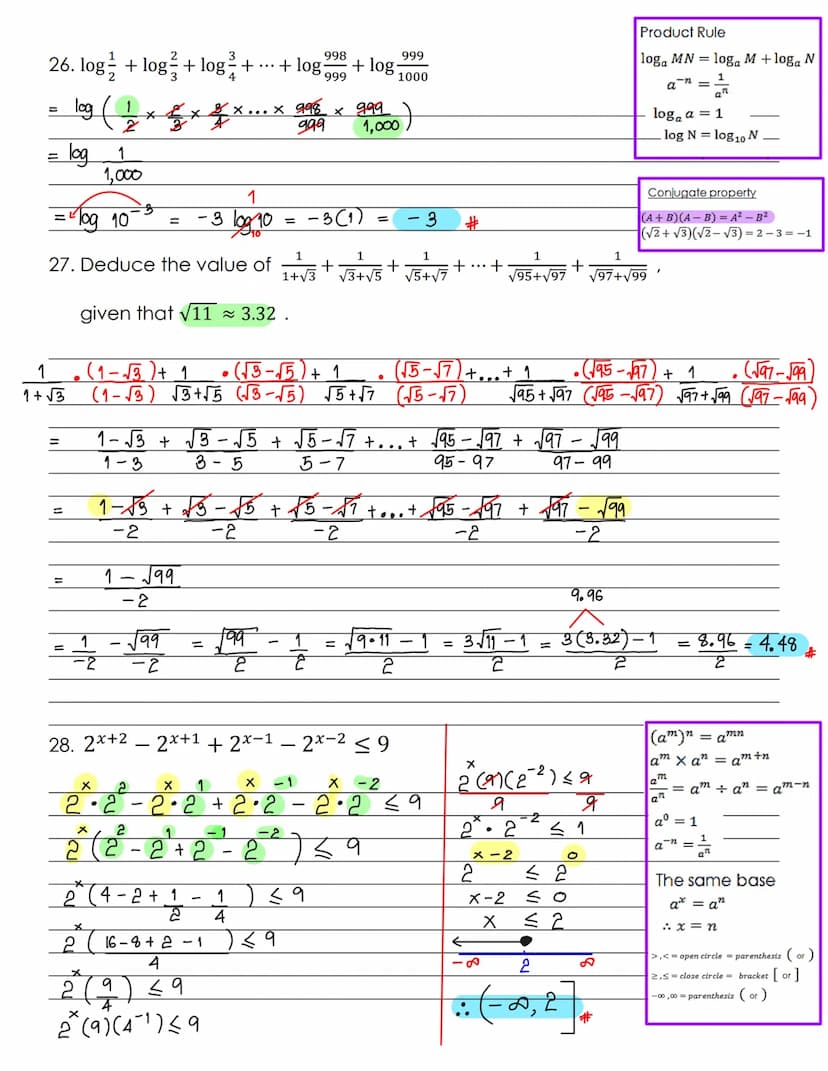 26. log 1/2 + log 2/3 + log 3/4 + ⋯ + log 998/999 + log 999/1000
= log ( 1/2 × 2/3 × 3/4 × ... × 998/999 × 999/1,000 )
= log 1/1,000
= log 10⁻³ = -3 log₁₀10 1 = -3(1) = -3 #
Product Rule
logₐ MN = logₐ M + logₐ N
a⁻ⁿ = 1/aⁿ
logₐ a = 1
log N = log₁₀ N
Conjugate property
(A + B)(A − B) = A² − B²
(√2 + √3)(√2 − √3) = 2 − 3 = −1
27. Deduce the value of 1/(1+√3) + 1/(√3+√5) + 1/(√5+√7) + ⋯ + 1/(√95+√97) + 1/(√97+√99) ,
given that √11 ≈ 3.32 .
1/(1+√3) • (1-√3)/(1-√3) + 1/(√3+√5) • (√3-√5)/(√3-√5) + 1/(√5+√7) • (√5-√7)/(√5-√7) + ... + 1/(√95+√97) • (√95-√97)/(√95-√97) + 1/(√97+√99) • (√97-√99)/(√97-√99)
= (1-√3)/(1-3) + (√3-√5)/(3-5) + (√5-√7)/(5-7) + ... + (√95-√97)/(95-97) + (√97-√99)/(97-99)
= (1-√3)/-2 + (√3-√5)/-2 + (√5-√7)/-2 + ... + (√95-√97)/-2 + (√97-√99)/-2
= (1-√99)/-2
9.96
= 1/-2 - √99/-2 = √99/2 - 1/2 = (√9•11 - 1)/2 = (3√11 - 1)/2 = (3(3.32)-1)/2 = 8.96/2 = 4.48 #
28. 2ˣ⁺² − 2ˣ⁺¹ + 2ˣ⁻¹ − 2ˣ⁻² ≤ 9
2ˣ•2² - 2ˣ•2¹ + 2ˣ•2⁻¹ - 2ˣ•2⁻² ≤ 9
2ˣ(2² - 2¹ + 2⁻¹ - 2⁻²) ≤ 9
2ˣ(4 - 2 + 1/2 - 1/4) ≤ 9
2ˣ((16-8+2-1)/4) ≤ 9
2ˣ(9/4) ≤ 9
2ˣ(9)(4⁻¹) ≤ 9
2ˣ(9)(2⁻²)/9 ≤ 9/9
2ˣ • 2⁻² ≤ 1
2ˣ⁻² ≤ 2⁰
x-2 ≤ 0
x ≤ 2
-∞ 2 ∞
∴ (-∞, 2] #
(aᵐ)ⁿ = aᵐⁿ
aᵐ × aⁿ = aᵐ⁺ⁿ
aᵐ/aⁿ = aᵐ ÷ aⁿ = aᵐ⁻ⁿ
a⁰ = 1
a⁻ⁿ = 1/aⁿ
The same base
aˣ = aⁿ
∴ x = n
>,< = open circle = parenthesis ( or )
≥,≤ = close circle = bracket [ or ]
−∞,∞ = parenthesis ( or )